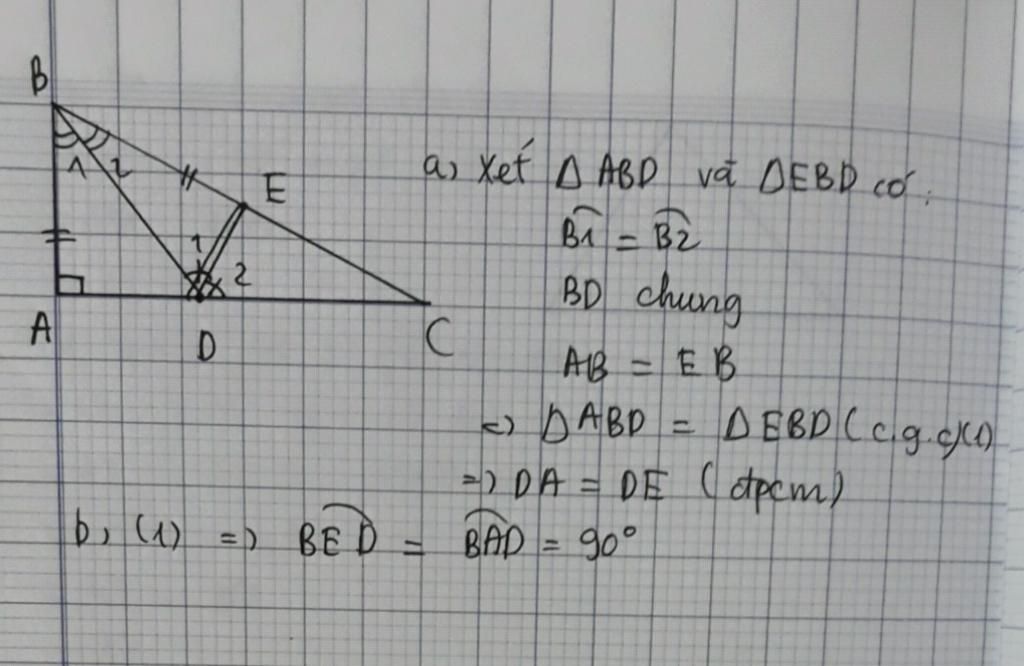 B
1 2
E
1
2
A
D
C
a, Xét Δ ABD và ΔEBD có:
B1 = B2
BD chung
AB = EB
=> ΔABD = ΔEBD (c.g.c)(1)
=> DA = DE (đpcm)
b, (1) => BED = BAD = 90°